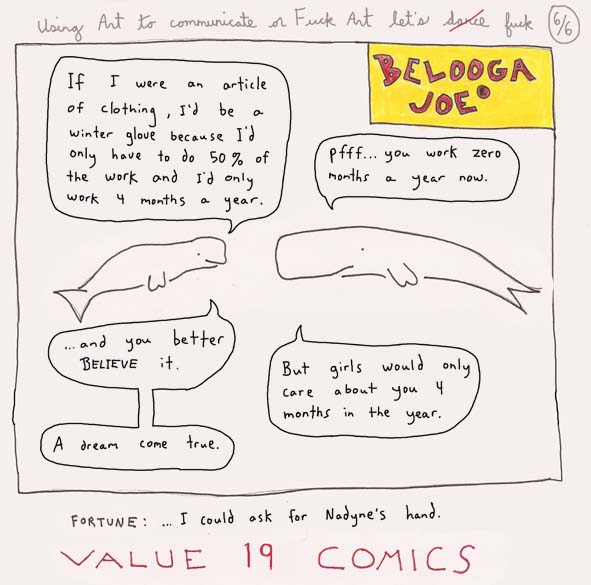 Using Art to communicate or Fuck Art let's dance fuck 6/6
BELOOGA
JOE®
If I were an article
of clothing, I'd be a
winter glove because I'd
only have to do 50% of
the work and I'd only
work 4 months a year.
Pfff... you work zero
months a year now.
...and you better
BELIEVE it.
A dream come true.
But girls would only
care about you 4
months in the year.
FORTUNE: ... I could ask for Nadyne's hand.
VALUE 19 COMICS